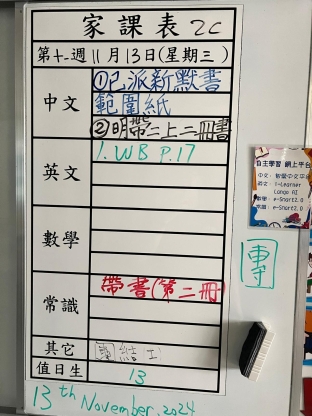 家課表 2C
第十一週 11月13日(星期三)
中文
①已派新默書
範圍紙
②明帶二上二冊書
英文
1. WB P.17
數學
常識
帶書(第二冊)
其它
結工
值日生
13
13th November, 2024
自主學習 網上平台
中文:
英文: i-Learner
Lango AI
數學: e-Smart2.0
常識: e-Smart2.0